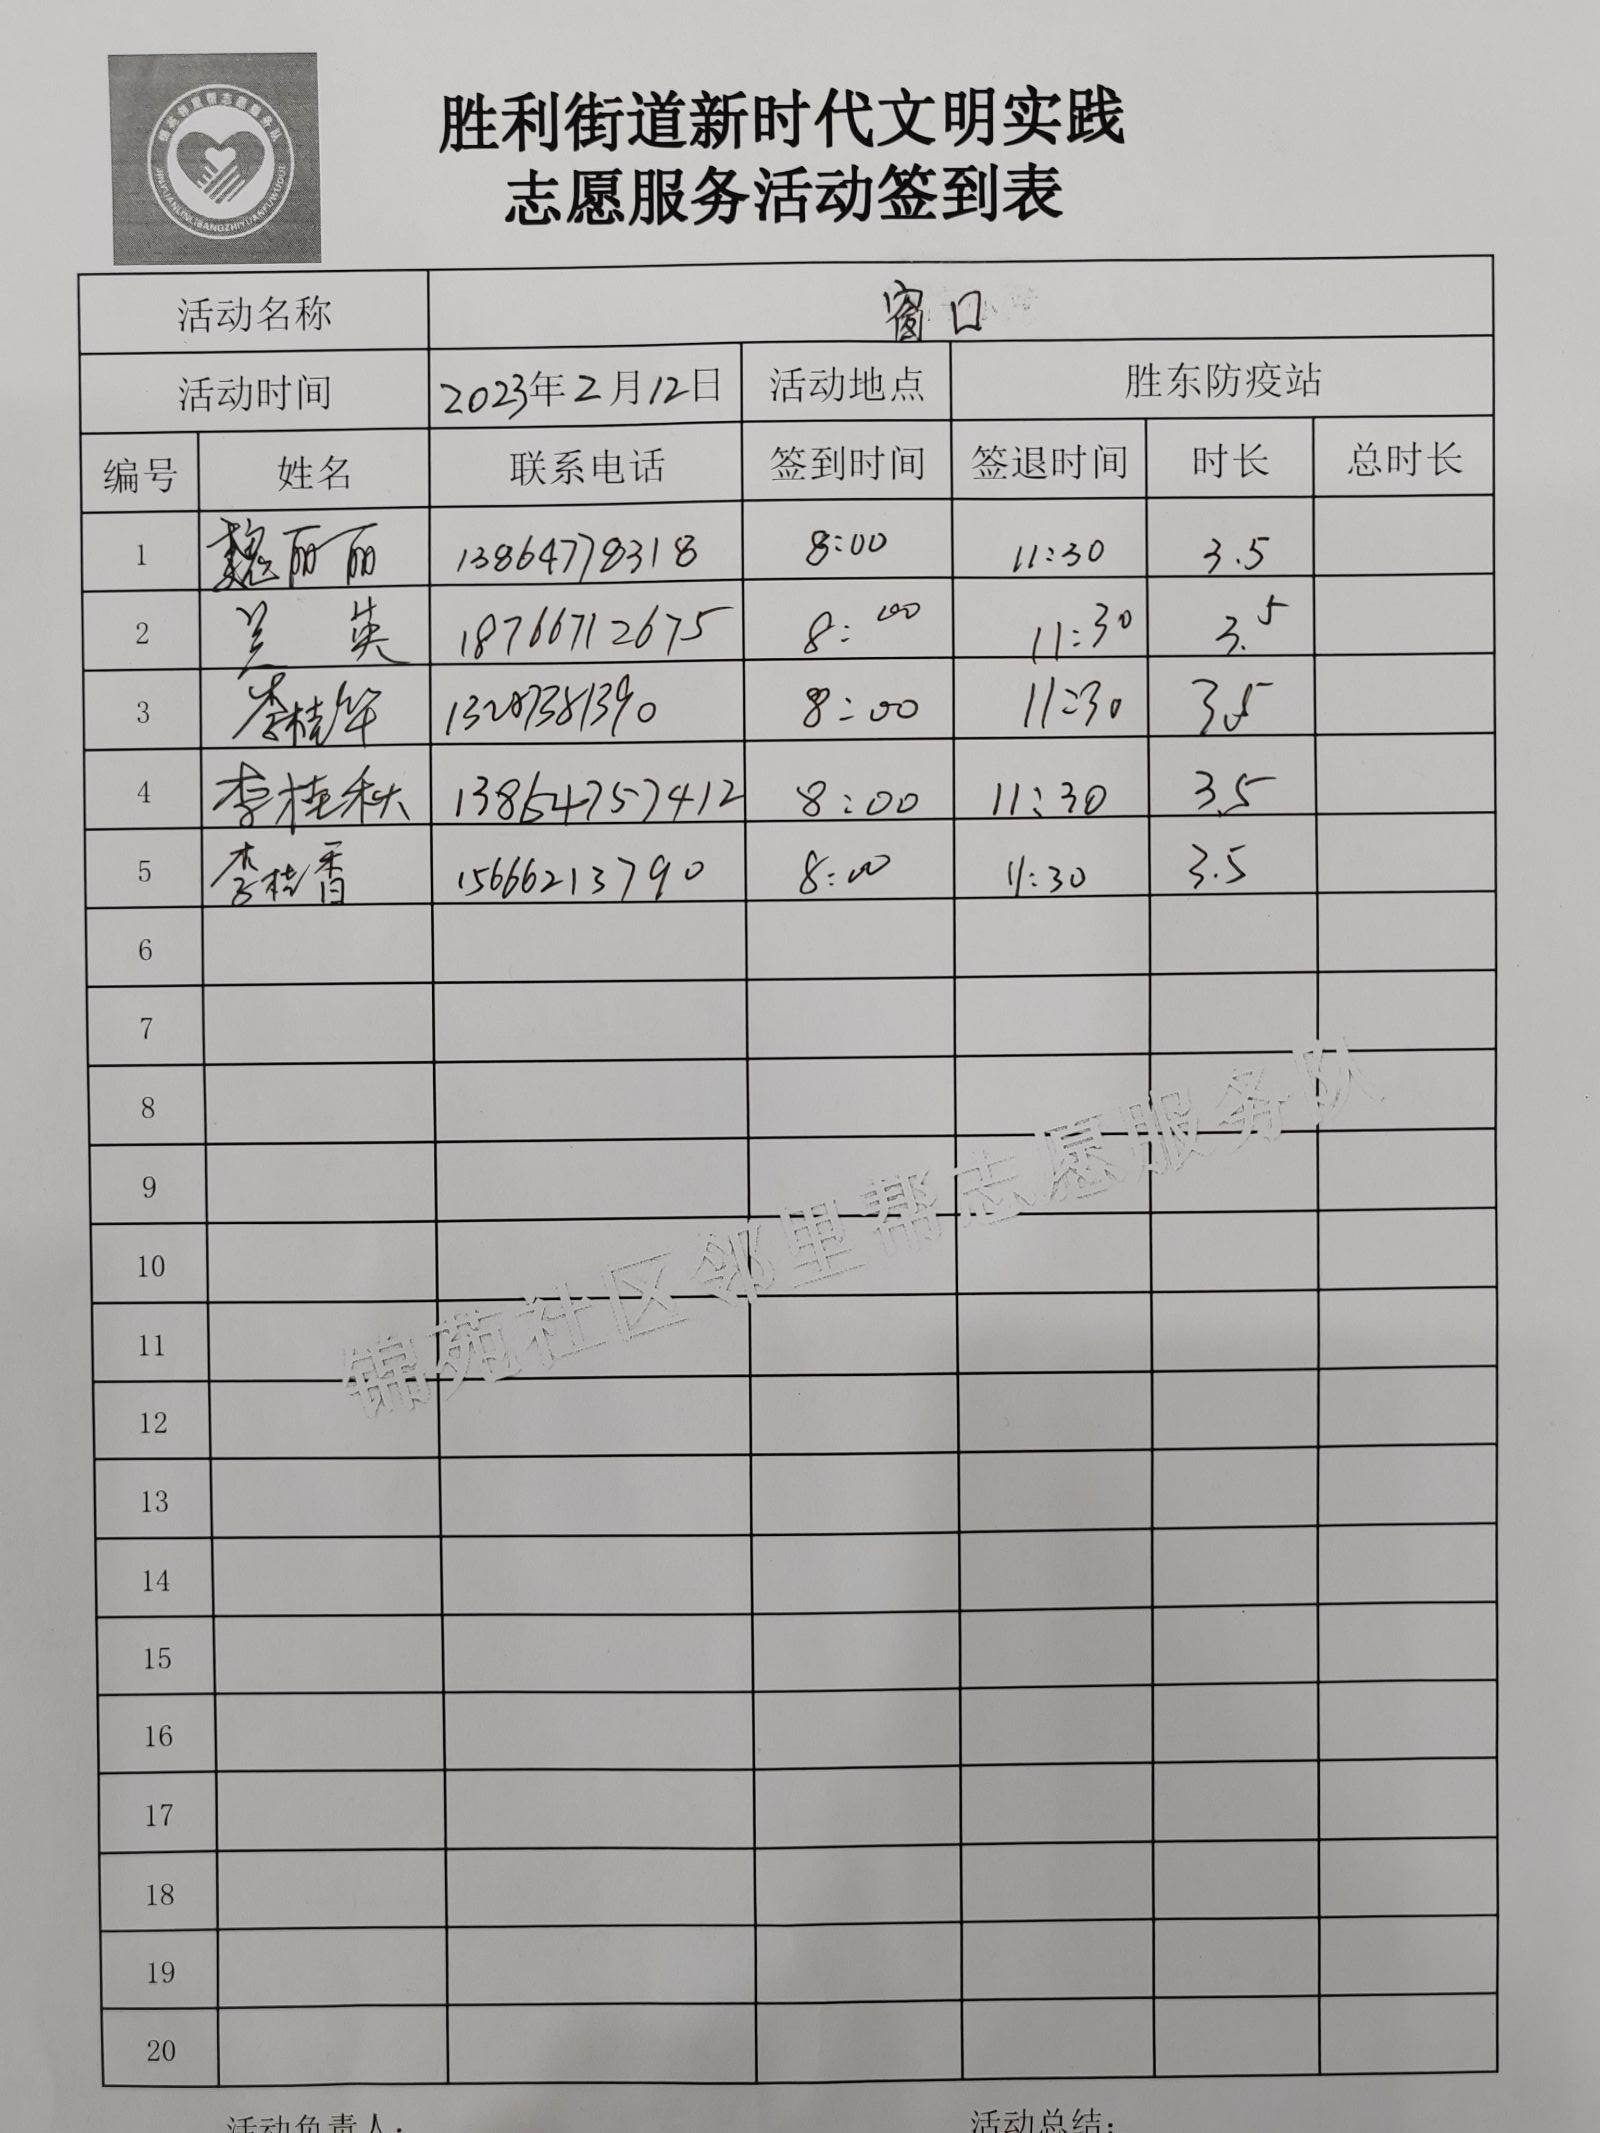 锦苑邻里帮志愿服务队
JINYUANLINLIBANGZHIYUANFUWUDUI
胜利街道新时代文明实践
志愿服务活动签到表
活动名称 窗口
活动时间 2023年2月12日 活动地点 胜东防疫站
编号 姓名 联系电话 签到时间 签退时间 时长 总时长
1 魏丽丽 13864778318 8:00 11:30 3.5
2 兰英 18766712675 8:00 11:30 3.5
3 李桂华 8:00 11:30 3.5
4 李桂秋 13854757412 8:00 11:30 3.5
5 李桂香 15666213790 8:00 11:30 3.5
6
7
8
9
10
11
12
13
14
15
16
17
18
19
20
锦苑社区邻里帮志愿服务队
活动负责人: 活动总结: